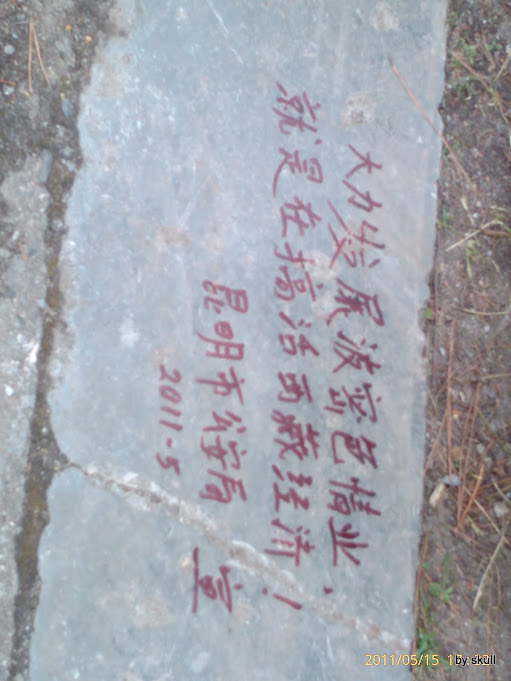 大力发展波密色情业，
就是在搞活西藏经济！
昆明市公安局 宣
2011-5
2011/05/15
by skull